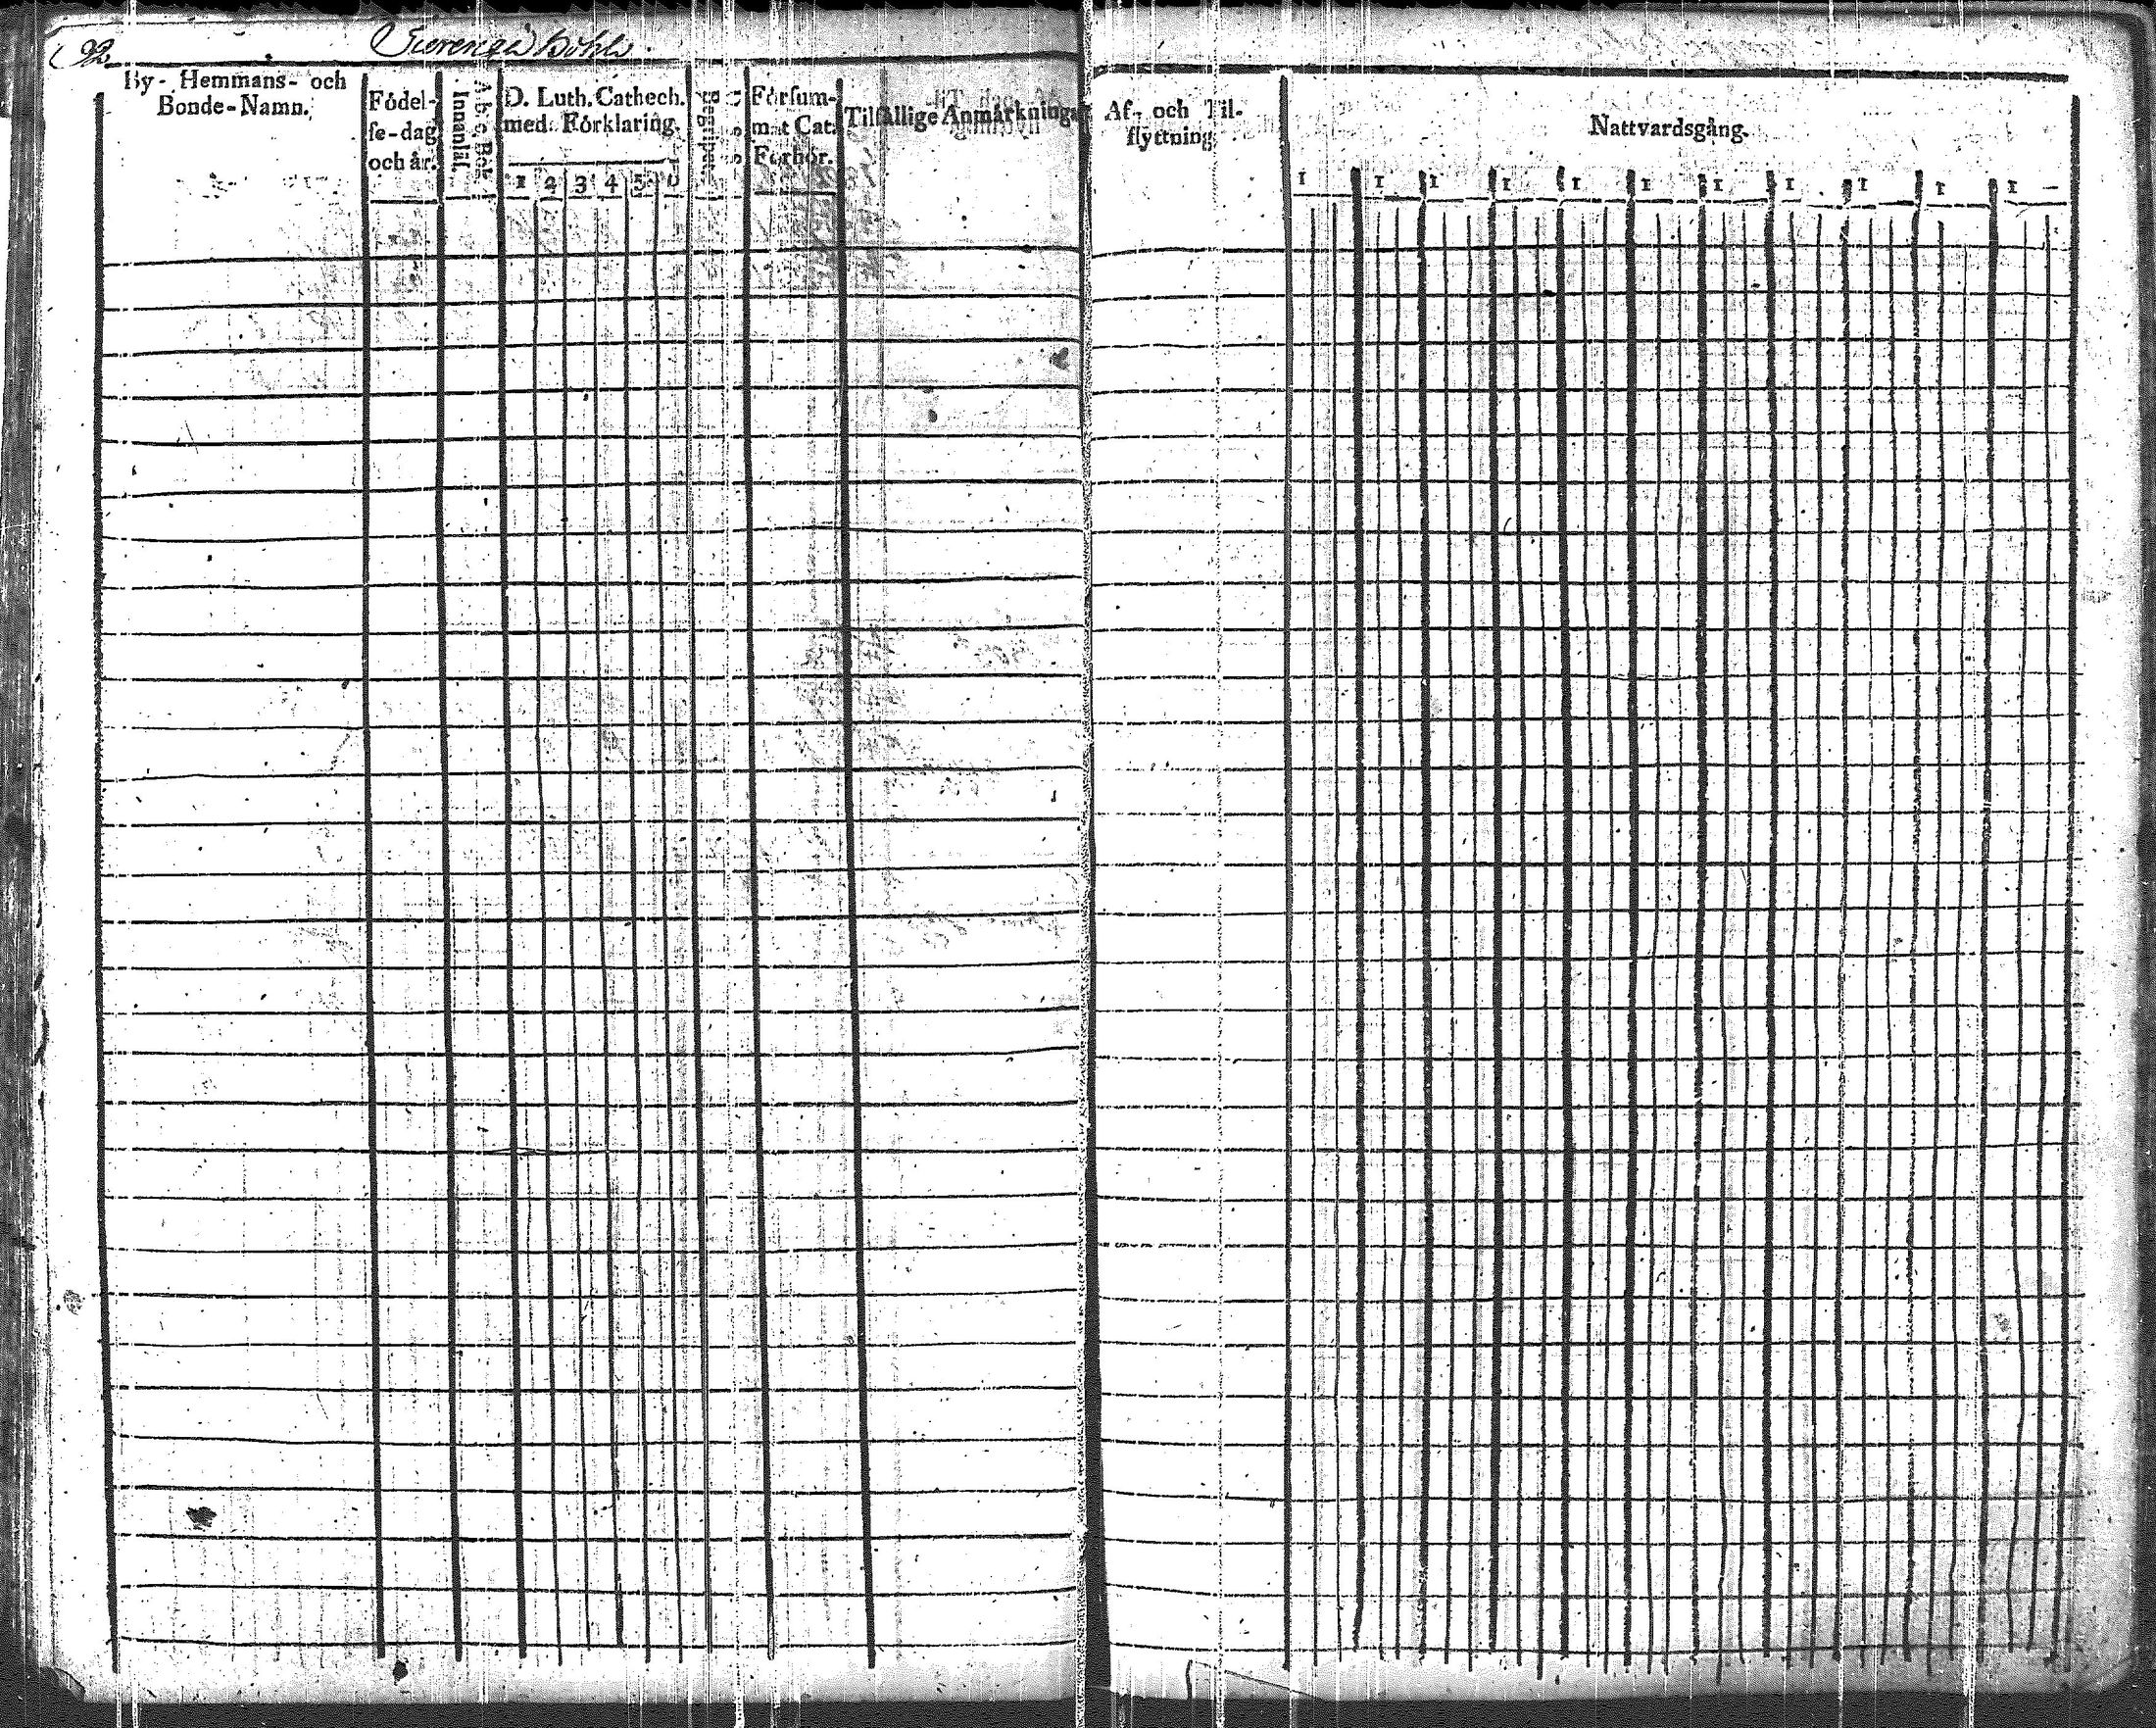 92
By- Hemmans- och
Bonde-Namn.
Födel-
se-dag
och år.
A.b.c. Bok.
Innanläs.
D. Luth. Cathech.
med Förklaring.
1 2 3 4 5 6
Begrepet.
Försum-
mat Cat.
Förhör.
Tilfällige Anmärkninga
Af- och Til-
flyttning
Nattvardsgång.
1 1 1 1 1 1 1 1 1 1 1